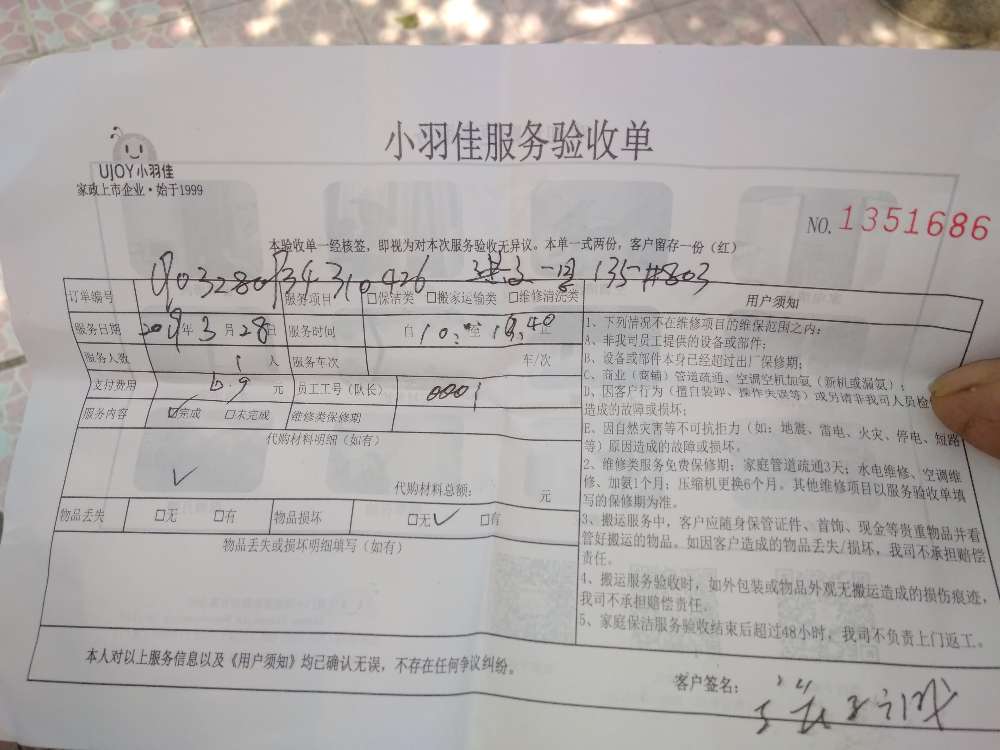 小羽佳服务验收单
UJOY小羽佳
家政上市企业·始于1999
NO. 1351686
本验收单一经核签，即视为对本次服务验收无异议。本单一式两份，客户留存一份（红）
订单编号 服务项目 □保洁类 □搬家运输类 □维修清洗类
135-#803
服务日期 2019年3月28日 服务时间 自10: 至
服务人数 1 人 服务车次 车/次
支付费用 元 员工工号（队长） 0001
服务内容 ☑完成 □未完成 维修类保修期
代购材料明细（如有）
✓
代购材料总额： 元
物品丢失 □无 □有 物品损坏 □无✓ □有
物品丢失或损坏明细填写（如有）
用户须知
1、下列情况不在维修项目的维保范围之内：
A、非我司员工提供的设备或部件；
B、设备或部件本身已经超过出厂保修期；
C、商业（商铺）管道疏通、空调空机加氨（新机或漏氨）；
D、因客户行为（擅自装卸、操作失误等）或另请非我司人员检
造成的故障或损坏；
E、因自然灾害等不可抗拒力（如：地震、雷电、火灾、停电、短路
等）原因造成的故障或损坏。
2、维修类服务免费保修期：家庭管道疏通3天；水电维修、空调维
修、加氨1个月；压缩机更换6个月。其他维修项目以服务验收单填
写的保修期为准。
3、搬运服务中，客户应随身保管证件、首饰、现金等贵重物品并看
管好搬运的物品。如因客户造成的物品丢失/损坏，我司不承担赔偿
责任。
4、搬运服务验收时，如外包装或物品外观无搬运造成的损伤痕迹，
我司不承担赔偿责任。
5、家庭保洁服务验收结束后超过48小时，我司不负责上门返工。
本人对以上服务信息以及《用户须知》均已确认无误，不存在任何争议纠纷。
客户签名：